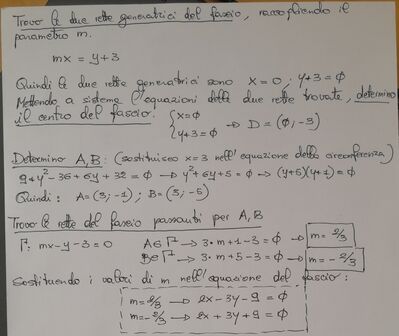 Trovo le due rette generatrici del fascio, raccogliendo il
parametro m.
mx = y+3
Quindi le due rette generatrici sono x = 0 ; y+3 = ϕ
Mettendo a sistema l'equazioni delle due rette trovate, determino
il centro del fascio: { x=ϕ
y+3=ϕ → D = (ϕ, -3)
Determino A, B : (sostituisco x=3 nell'equazione della circonferenza)
9+y²-36+6y+32=ϕ → y²+6y+5=ϕ → (y+5)(y+1)=ϕ
Quindi : A=(3;-1) ; B=(3;-5)
Trovo le rette del fascio passanti per A, B
Γ: mx-y-3=0 A∈Γ → 3·m+1-3=ϕ → m=2/3
B∈Γ → 3·m+5-3=ϕ → m=-2/3
Sostituendo i valori di m nell'equazione del fascio :
m=2/3 → 2x-3y-9=ϕ
m=-2/3 → 2x+3y+9=ϕ